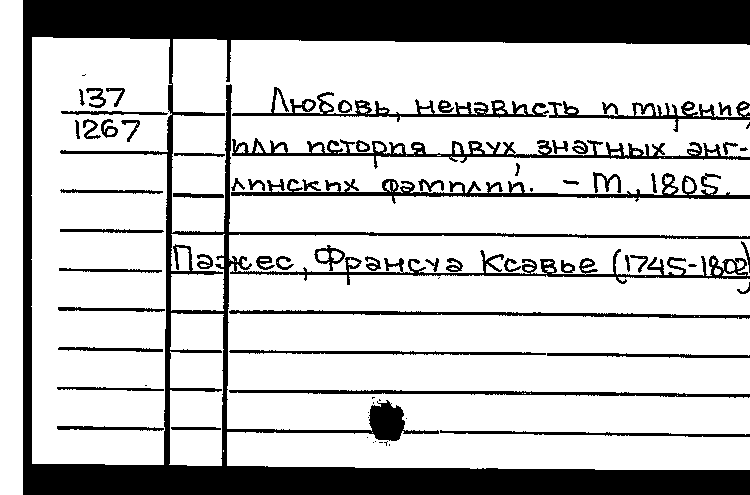 137
1267
Любовь, ненависть и мщение,
или история двух знатных анг-
лийских фамилий. - М., 1805.
Пажес, Франсуа Ксавье (1745-1802)